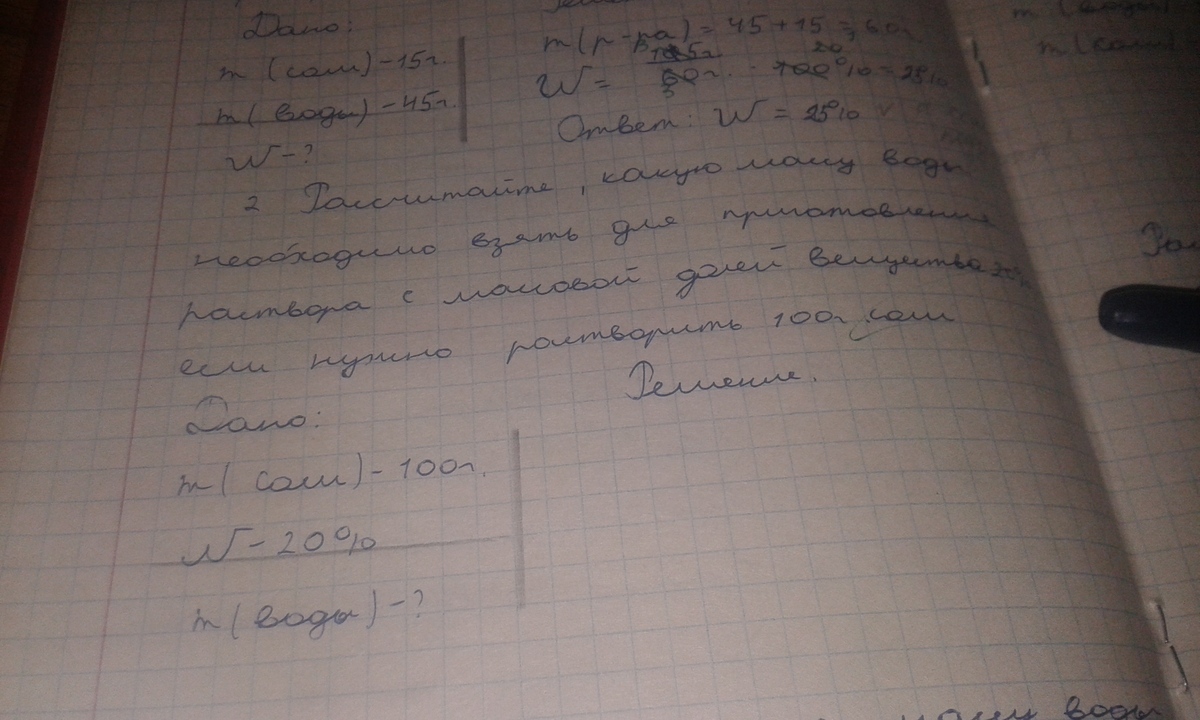 Дано:
m (соли) - 15г.
m (воды) - 45г.
W - ?
m (р-ра) = 45 + 15 = 60г.
W = 15г. / 60г. · 100% = 25%
Ответ: W = 25%
2 Рассчитайте, какую массу воды
необходимо взять для приготовления
раствора с массовой долей вещества 20%
если нужно растворить 100г соли
Решение.
Дано:
m ( соли) - 100г.
W - 20%
m (воды) - ?
m (воды)
m (соли)
воды